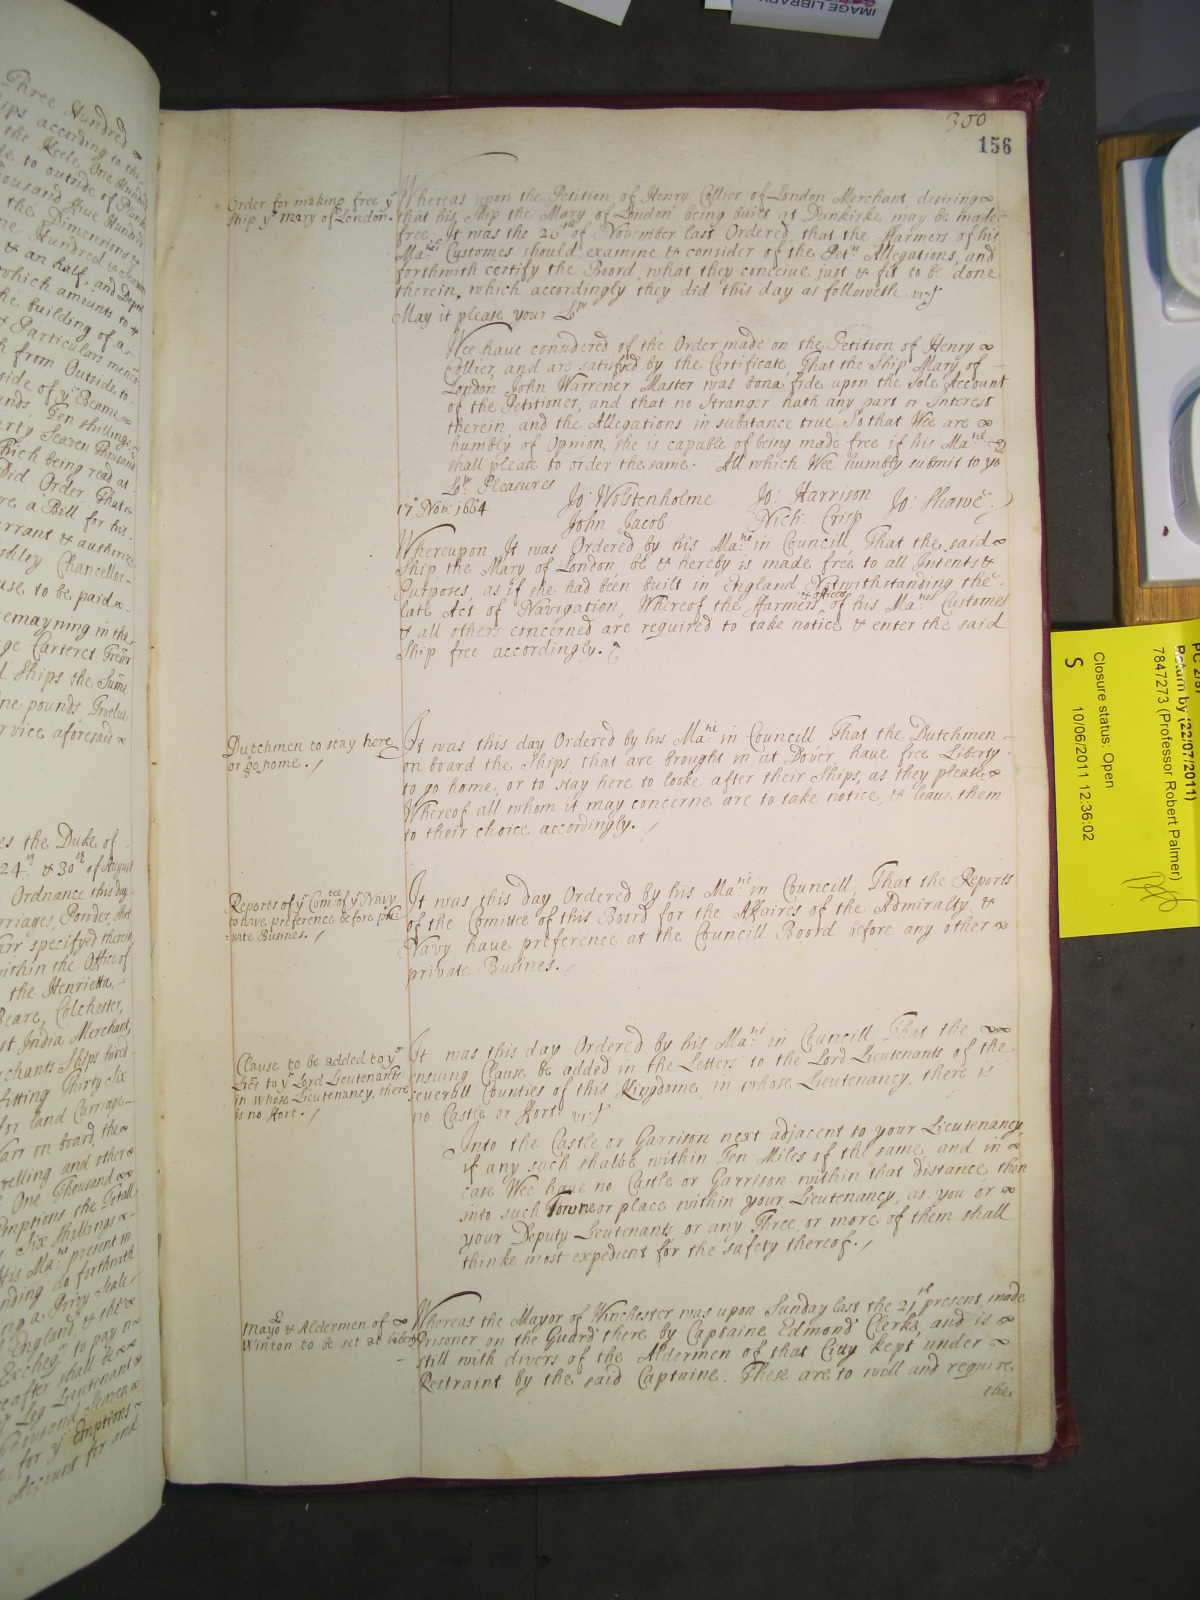 IMAGE LIBRARY
Three Hundred
ips according to the
the Keele One Hundred
de to outside of Plank
housand five Hundred
the Dimensions &
ne Hundred & Seaven
& an half, and Depth
which amounts to
he building of a
& Particulars menc
k from Outside to
side of yᵉ Beame
unds, Ten shillings
irty Seaven Thousand
hich being read at
Did Order That
re a Bill for his
arrant & authorize
shley Chancellor
use to be paid
emayning in the
ge Carteret Trẽar
d Ships the Sume
ne pounds Twelve
rvice aforesaid
es the Duke of
24ᵗʰ & 30ᵗʰ of August
Ordnance this day
rriages, Powder, Shot
err specifyd therein
within the Office of
the Henrietta,
Beare, Colchester,
st India Merchant,
rchants Ships hired
fitting Thirty Six
for land Carriage
arr on board the
velling and other
One Thousand
Emptions the Totall
Six Shillings
His Maᵗⁱᵉ present in
nding do forthwith
ng a Privy Seale
England, & the
Excheqʳ to pay
eafter shall be
Leg Lieutenant
housand Seaven
for yᵉ Emptions
Account for and
350
156
Order for making free yᵉ
Ship yᵉ Mary of London.
Whereas upon the Petition of Henry Collier of London Merchant desiring
that his Ship the Mary of London being built at Dunkirke may be made
free, It was the 26ᵗʰ of November last Ordered, that the ffarmers of his
Maᵗⁱᵉˢ Customes should examine & consider of the Petʳˢ Allegations, and
forthwith certify the Board, what they conceive just & fit to be done
therein, which accordingly they did this day as followeth vizᵗ
May it please your Loᵖᵖˢ
Wee have considered of the Order made on the Petition of Henry
Collier, and are satisfyd by the Certificate, That the Ship Mary of
London John Warrener Master was bona fide upon the Sole Account
of the Petitioner, and that no Stranger hath any part or Interest
therein, and the Allegations in substance true, So that Wee are
humbly of Opnion, she is capable of being made free if his Maᵗⁱᵉ
shall please to order the same. All which Wee humbly submit to yoʳ
Loᵖᵖˢ Pleasures
17 Nobʳ: 1664
Jo: Wolstenholme Jo: Harrison Jo: Shawe
John Jacob Nich: Crisp
Whereupon It was Ordered by his Maᵗⁱᵉ in Councill, That the said
Ship the Mary of London be & hereby is made free to all Intents &
Purposes, as if she had been built in England Notwithstanding the
late Act of Navigation, Whereof the ffarmers & officers of his Maᵗⁱᵉˢ Customes
& all others concerned are required to take notice & enter the said
Ship free accordingly.
Dutchmen to stay here
or go home.
It was this day Ordered by his Maᵗⁱᵉ in Councill That the Dutchmen
on board the Ships that are brought in at Dover, have free Liberty
to go home, or to stay here to looke after their Ships, as they please
Whereof all whom it may concerne are to take notice, & leave them
to their choice accordingly.
Reports of yᵉ Comᵗᵉᵉ of yᵉ Navy
to have preference before pri
vate Busines.
It was this day Ordered by his Maᵗⁱᵉ in Councill, That the Reports
of the Comittee of this Board for the Affaires of the Admiralty &
Navy have preference at the Councill Board before any other
private Busines.
Clause to be added to yᵉ
Lr̃es to yᵉ Lord Lieutenants
in whose Lieutenancy, there
is no ffort.
It was this day Ordered by his Maᵗⁱᵉ in Councill That the
ensuing Clause be added in the Letters to the Lord Lieutenants of the
severall Counties of this Kingdome, in whose Lieutenancy, there is
no Castle or ffort vizᵗ
Into the Castle or Garrison next adjacent to your Lieutenancy,
if any such shalbe within Ten Miles of the same, and in
case Wee have no Castle or Garrison within that distance, then
into such Towne or place within your Lieutenancy, as you or
your Deputy Lieutenants or any Three or more of them shall
thinke most expedient for the safety thereof.
Mayoʳ & Aldermen of
Winton to be set at liberty
Whereas the Mayor of Winchester was upon Sunday last the 21ᵗʰ present made
Prisoner on the Guard there by Captaine Edmond Clerke, and is
still with divers of the Aldermen of that Citty kept under
Restraint by the said Captaine. These are to will and require
the
PC 2/57
Return by (22/07/2011)
7847273 (Professor Robert Palmer)
Closure status: Open
S 10/06/2011 12:36:02